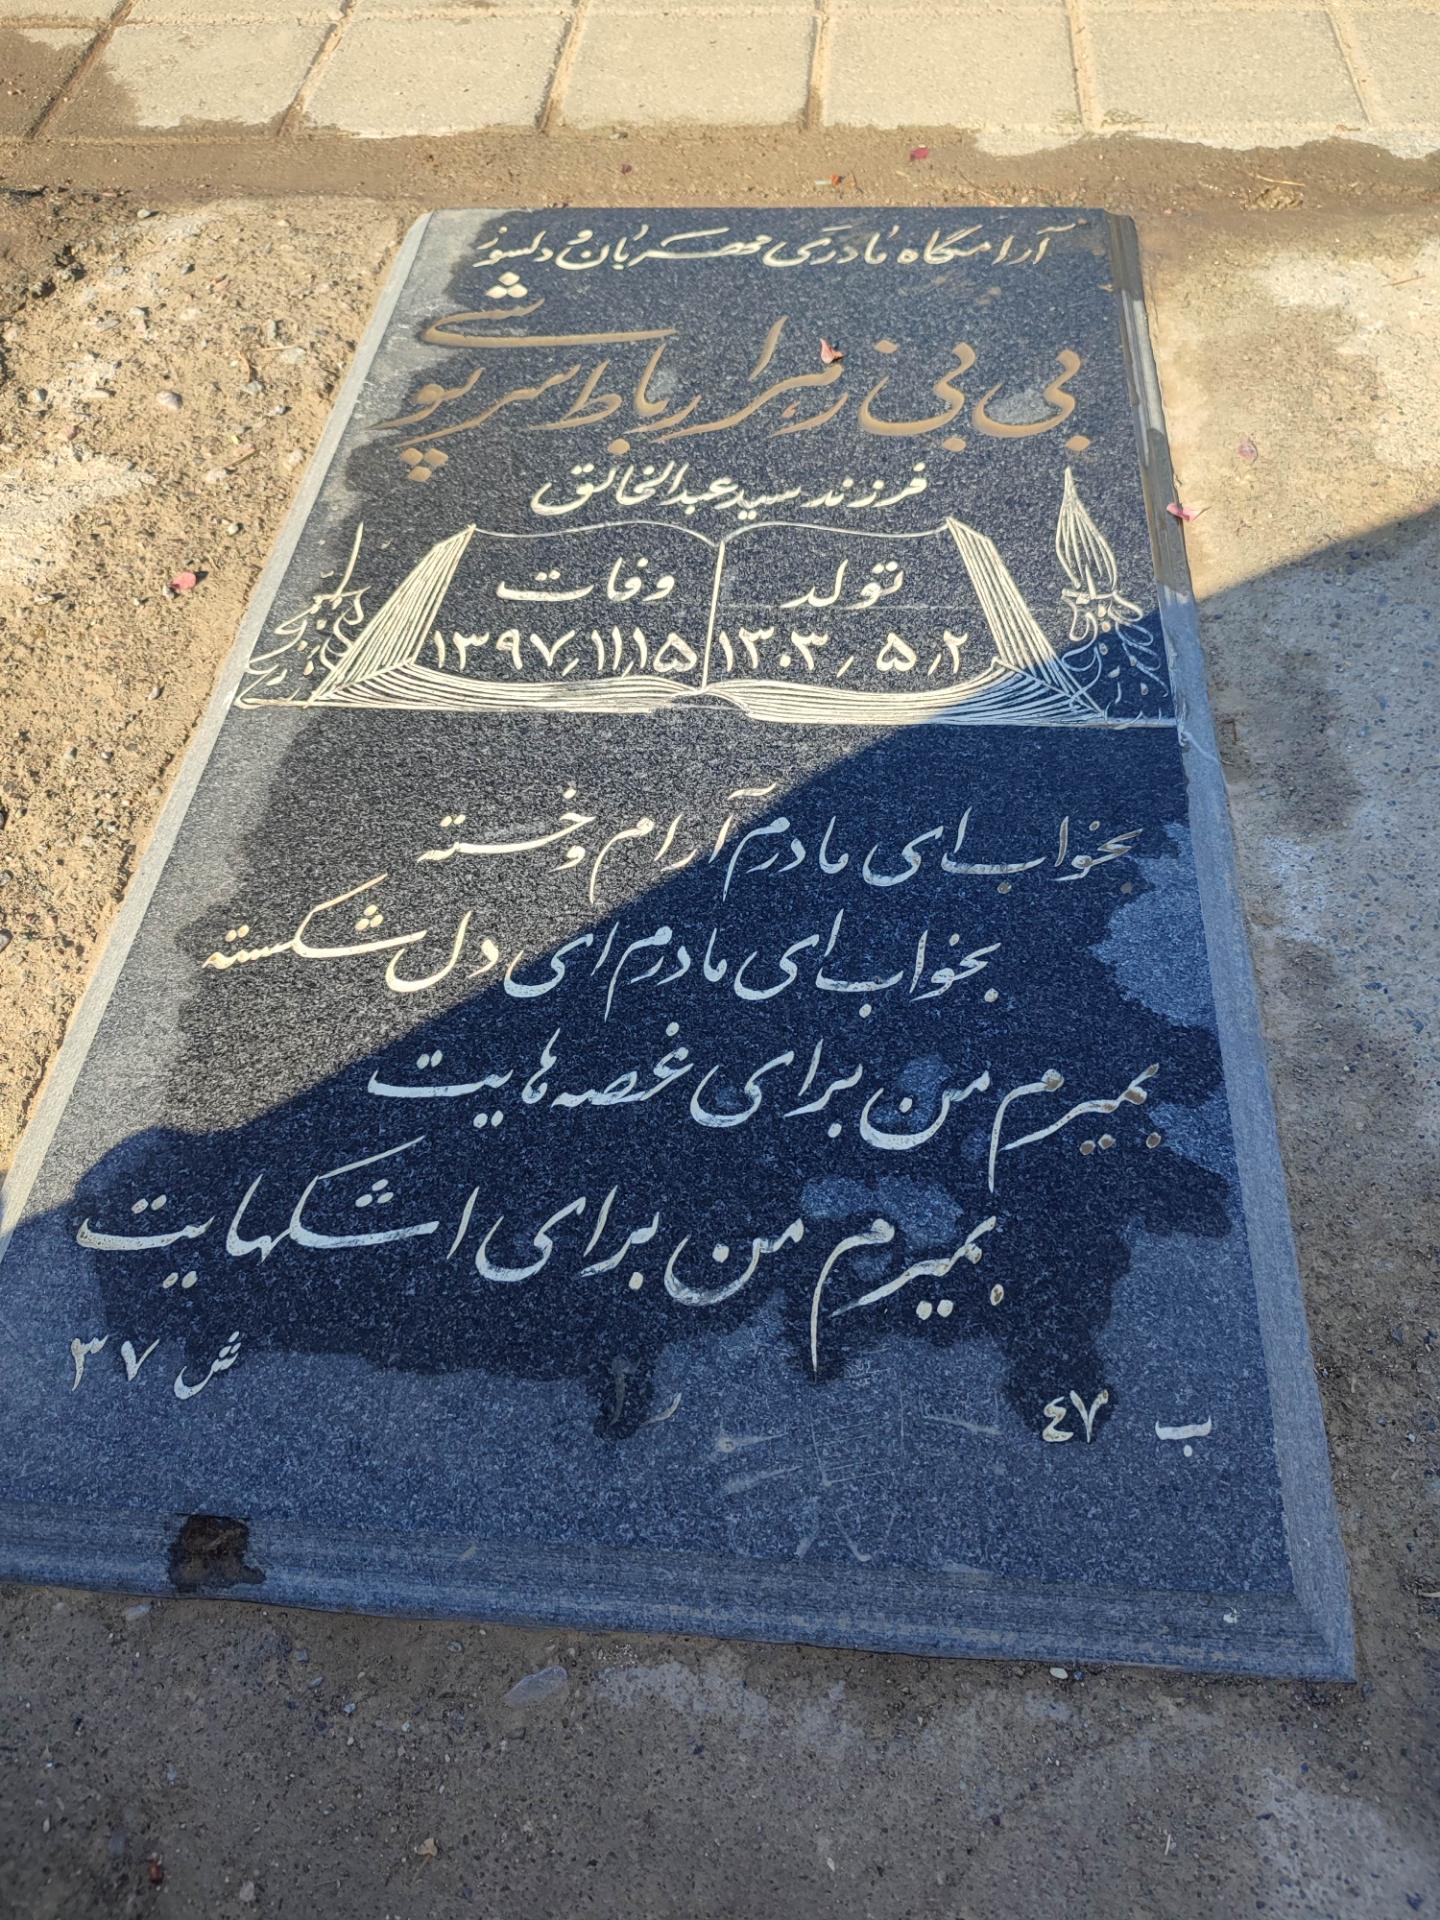 آرامگاه مادری مهربان و دلسوز
بی بی زهرا رباط سرپوشی
فرزند سید عبدالخالق
تولد وفات
۱۳۰۳٫۵٫۲ ۱۳۹۷٫۱۱٫۱۵
بخواب ای مادرم آرام و خسته
بخواب ای مادرم ای دل شکسته
بمیرم من برای غصه هایت
بمیرم من برای اشکهایت
ب ٤٧ ر ش ۳۷